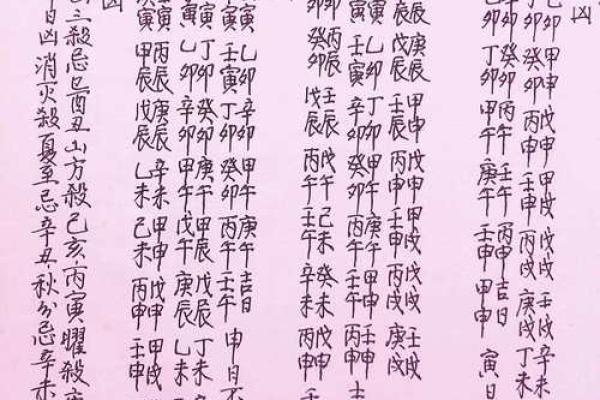 凶
卯甲申戊申甲戌戊戌壬戌辛未
癸卯丙申壬申丙戌庚戌丁未
癸卯丙午壬午丙申吉日
卯丁卯甲午庚午壬申甲申寅日
辰庚辰甲申戊申甲戌丙戌壬戌
辰戊辰壬辰丙申壬申丙戌庚戌
寅乙卯丁卯甲午庚午甲申壬申
壬寅辛卯癸卯丙午壬午丙申
卯丙辰壬辰戊午己未癸未戊申
卯癸卯戊辰丙午壬午辛未丙申
乙卯辛卯甲午庚午吉日
寅壬寅丁卯癸卯丙午壬午申日不
寅丁卯癸卯庚午甲辰戊辰丁未
寅乙卯辛卯甲午戊午庚辰乙未
寅丙辰庚辰辛未甲申戊申甲戌
寅甲辰戊辰乙未己未丙申壬申
凶
三殺忌巳酉丑山方殺己亥丙寅曜殺
日凶消灭殺夏至忌辛丑秋分忌辛未